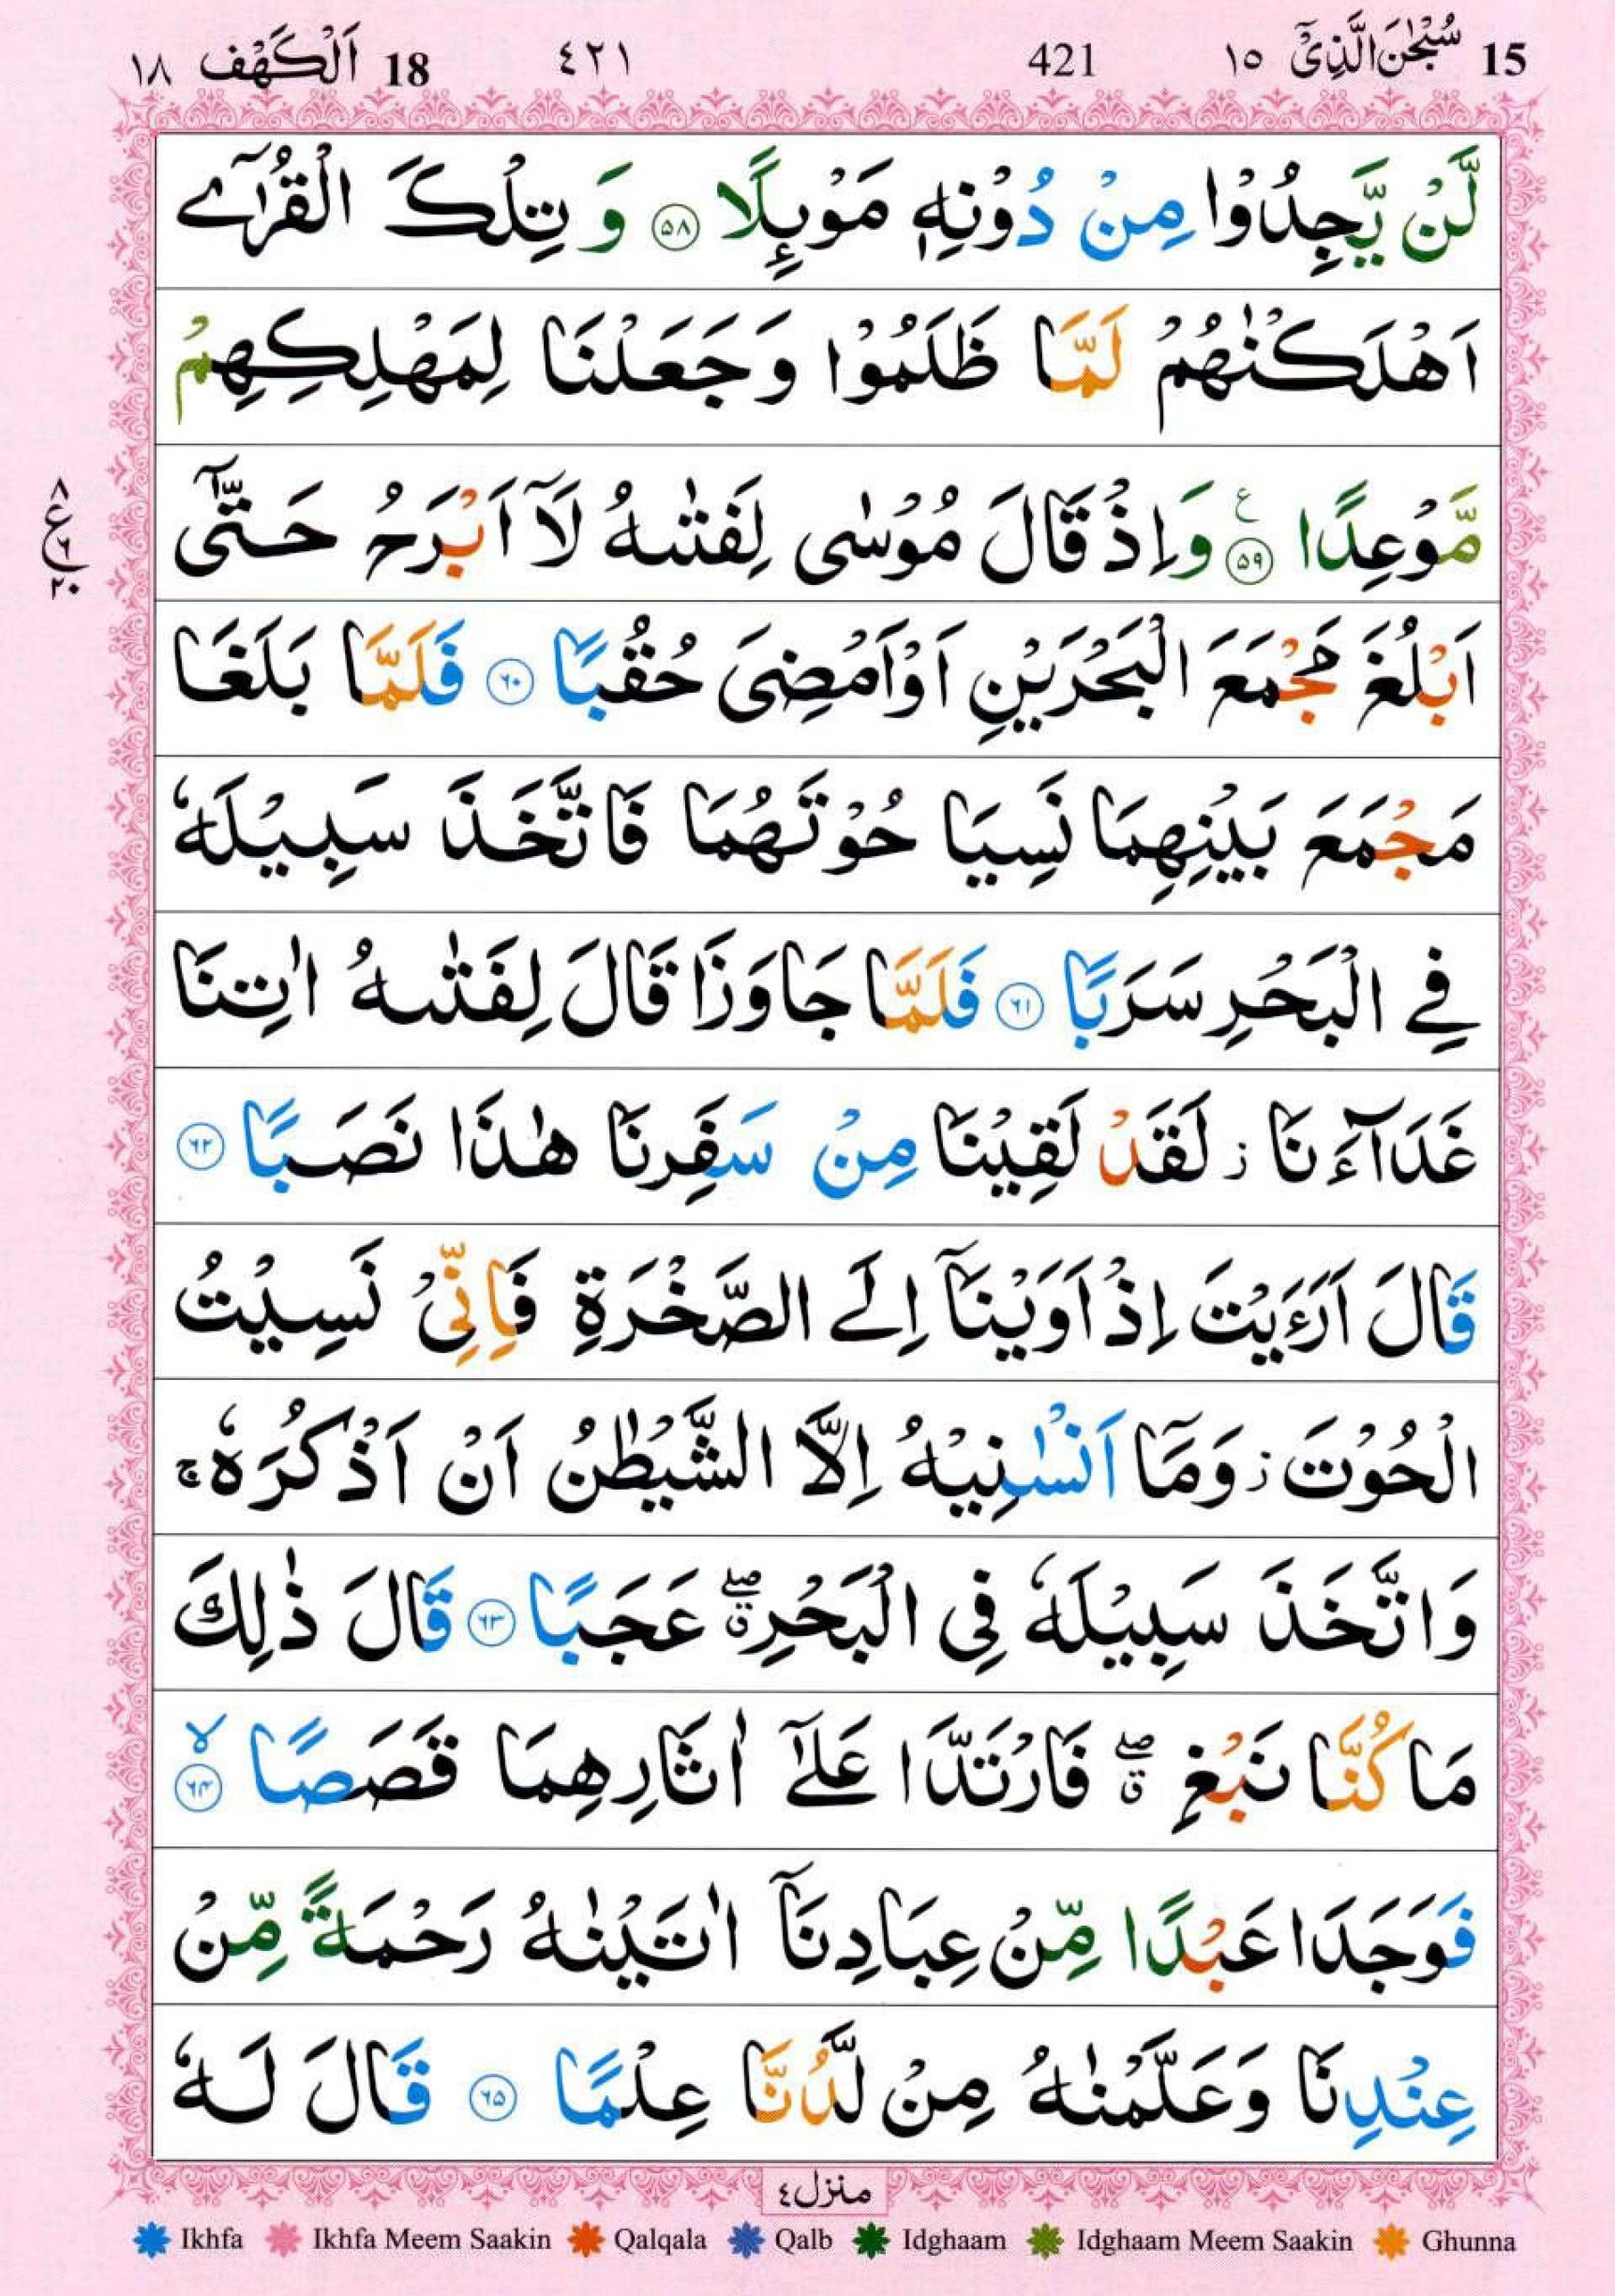 15 سُبۡحٰنَ الَّذِیۡۤ ١٥ 421 ٤٢١ 18 اَلۡكَهۡف ١٨
لَّنۡ يَّجِدُوۡا مِنۡ دُوۡنِهٖ مَوۡٮِٕلًا ۟﴿۵۸﴾ وَ تِلۡكَ الۡقُرٰٓى
اَهۡلَكۡنٰهُمۡ لَمَّا ظَلَمُوۡا وَ جَعَلۡنَا لِمَهۡلِكِهِمۡ
مَّوۡعِدًا ﴿۵۹﴾ ع وَاِذۡ قَالَ مُوۡسٰى لِفَتٰٮهُ لَاۤ اَبۡرَحُ حَتّٰۤى
٨ ع ٦ ٢٠
اَبۡلُغَ مَجۡمَعَ الۡبَحۡرَيۡنِ اَوۡ اَمۡضِىَ حُقُبًا ﴿۶۰﴾ فَلَمَّا بَلَغَا
مَجۡمَعَ بَيۡنِهِمَا نَسِيَا حُوۡتَهُمَا فَاتَّخَذَ سَبِيۡلَهٗ
فِى الۡبَحۡرِ سَرَبًا ﴿۶۱﴾ فَلَمَّا جَاوَزَا قَالَ لِفَتٰٮهُ اٰتِنَا
غَدَآءَنَا ز لَقَدۡ لَقِيۡنَا مِنۡ سَفَرِنَا هٰذَا نَصَبًا ﴿۶۲﴾
قَالَ اَرَءَيۡتَ اِذۡ اَوَيۡنَاۤ اِلَى الصَّخۡرَةِ فَاِنِّىۡ نَسِيۡتُ
الۡحُوۡتَ ز وَمَاۤ اَنۡسٰٮنِيۡهُ اِلَّا الشَّيۡطٰنُ اَنۡ اَذۡكُرَهٗ‌ۚ
وَاتَّخَذَ سَبِيۡلَهٗ فِى الۡبَحۡرِ ۖق عَجَبًا ﴿۶۳﴾ قَالَ ذٰلِكَ
مَا كُنَّا نَبۡغِ ۖق فَارۡتَدَّا عَلٰٓى اٰثَارِهِمَا قَصَصًا ۙ‏﴿۶۴﴾
فَوَجَدَا عَبۡدًا مِّنۡ عِبَادِنَاۤ اٰتَيۡنٰهُ رَحۡمَةً مِّنۡ
عِنۡدِنَا وَعَلَّمۡنٰهُ مِنۡ لَّدُنَّا عِلۡمًا ﴿۶۵﴾ قَالَ لَهٗ
منزل ٤
Ikhfa Ikhfa Meem Saakin Qalqala Qalb Idghaam Idghaam Meem Saakin Ghunna